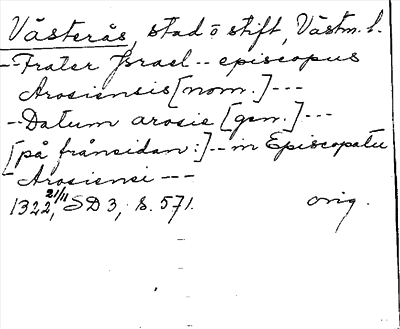 Västerås, stad o stift, Västm. l.
- Frater Israel -- episcopus
Arosiensis [nom.] ---
- Datum arosie [gen.] ---
[på frånsidan:] -- in Episcopatu
Arosiensi ---
1322 21/11, SD 3, s. 571. orig.